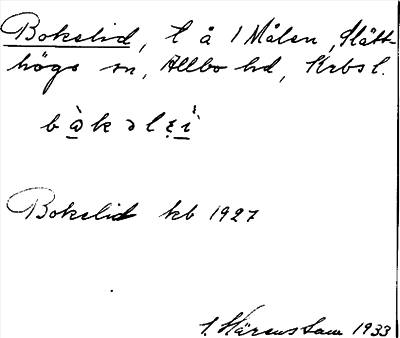 Bokelid, l å 1 Målen, Slätt-
högs sn, Allbo hd, Krbs l.
bòkəlɛì
Bokelid kb 1927
1933